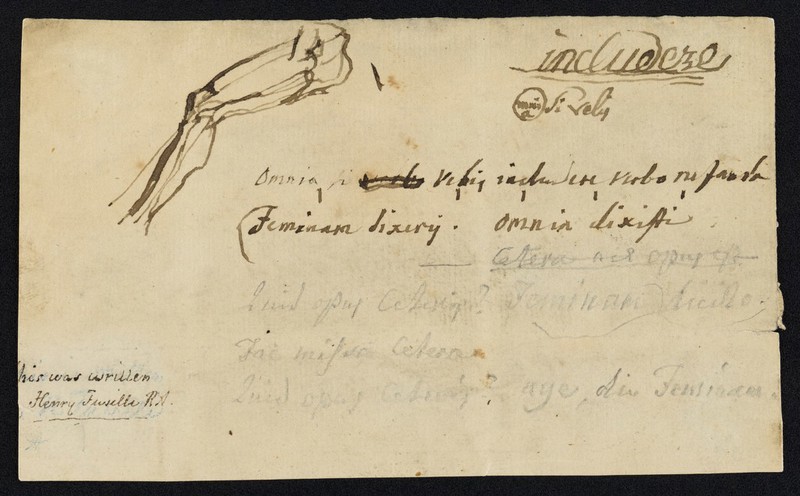 includere
Si velis
Omnia si velis includere verbo nefanda
Feminam dixeris. omnia dixisti
Cetera nil opus est
Quid opus Ceteris? Feminam
Fac missa Cetera
Quid opus Ceteris? age, dic Feminam.
his was written
Henry Fuselli R.A.